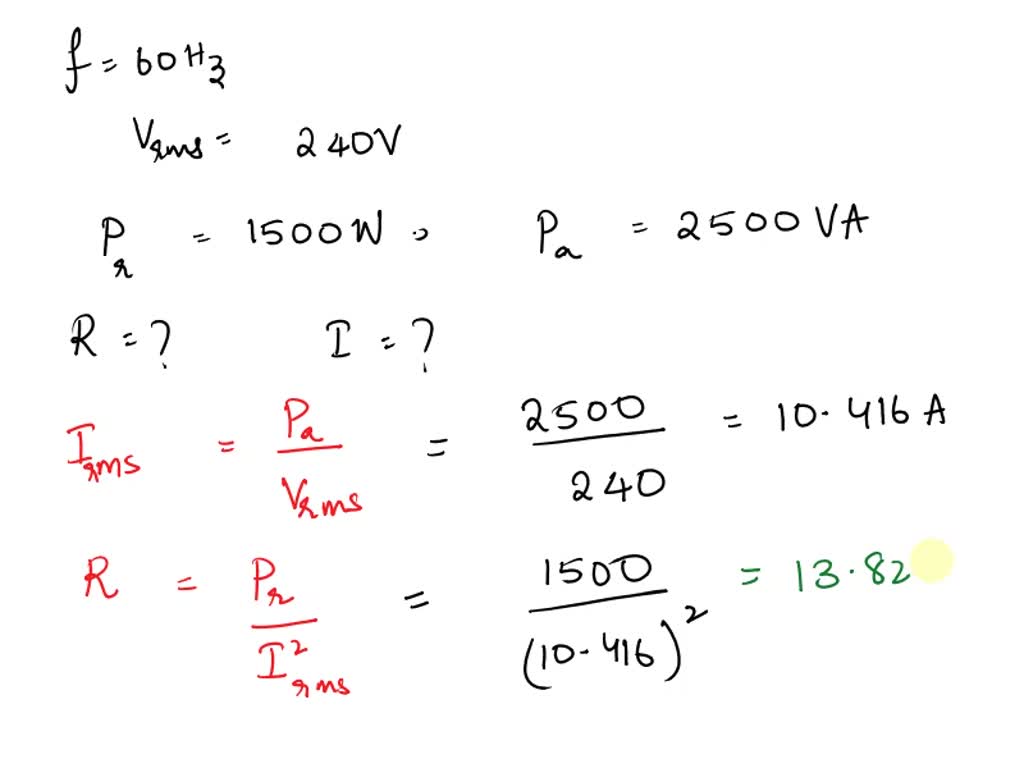 f = 60Hz
Vrms = 240V
Pr = 1500W , Pa = 2500 VA
R = ? I = ?
Irms = Pa / Vrms = 2500 / 240 = 10.416 A
R = Pr / I²rms = 1500 / (10.416)² = 13.82